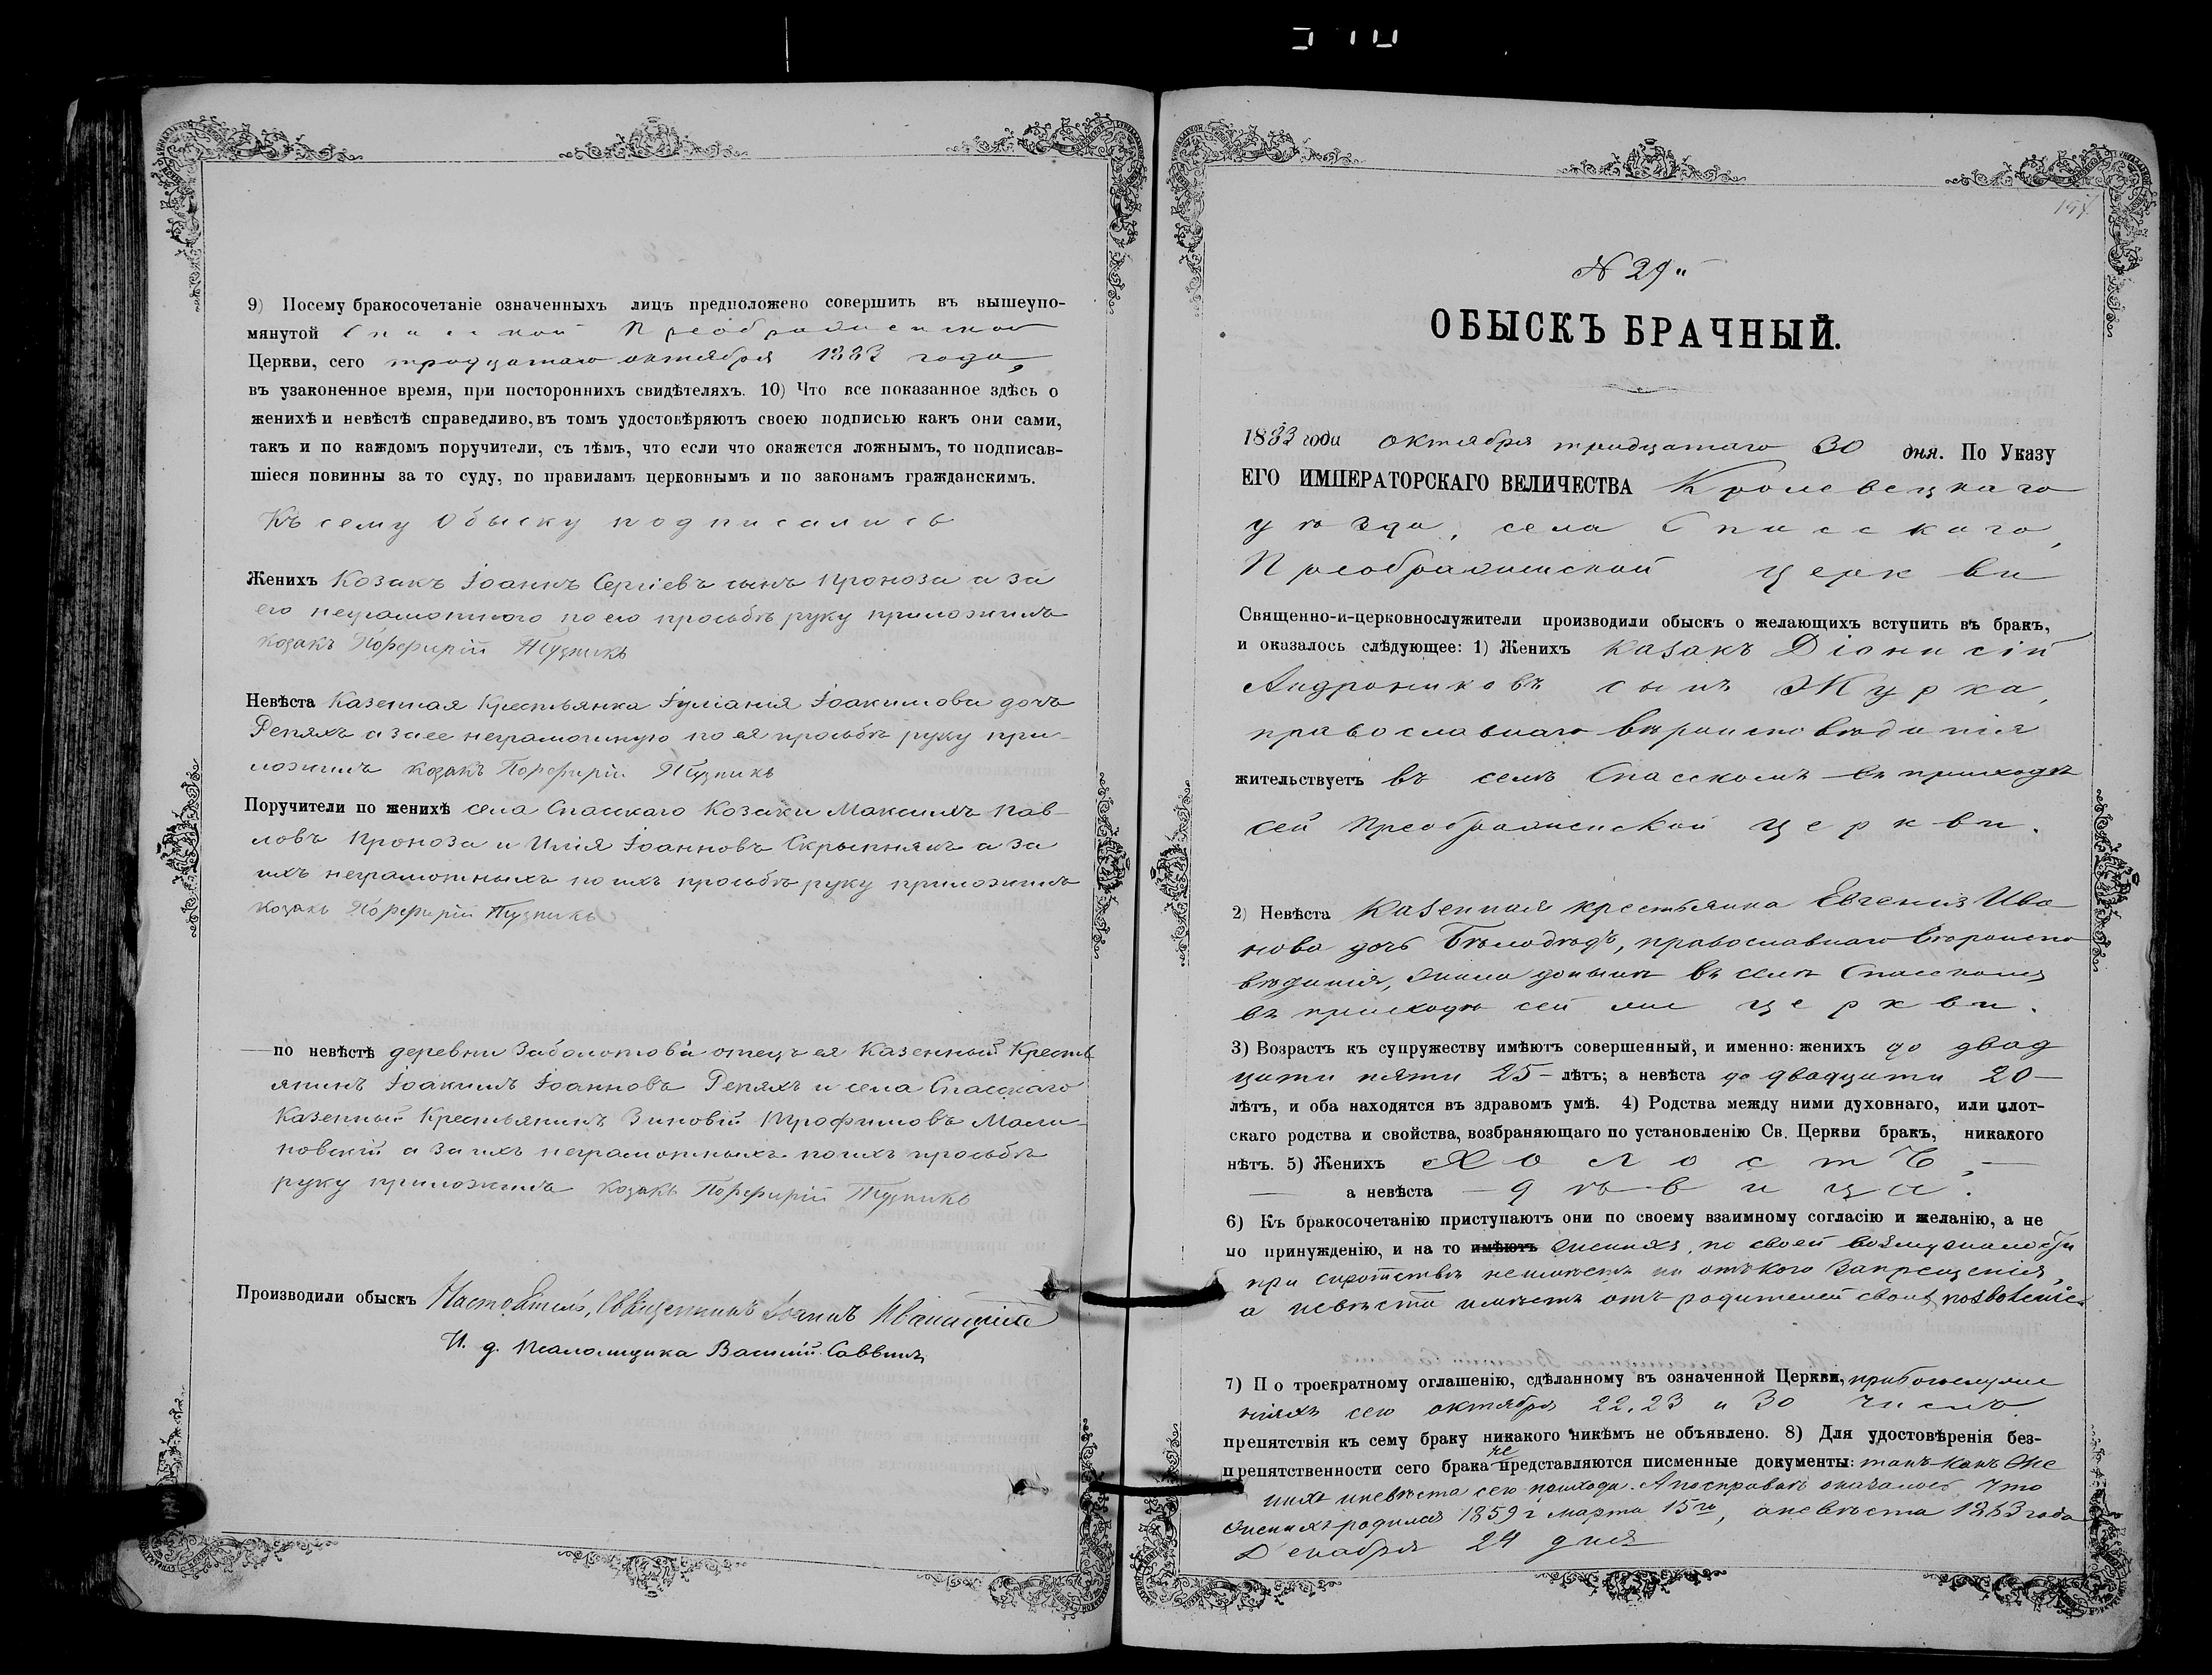 9) Посему бракосочетаніе означенныхъ лицъ предположено совершить въ вышеупо-
мянутой Спасской Преображенской
Церкви, сего тридцатаго октября 1883 года,
въ узаконенное время, при постороннихъ свидѣтеляхъ. 10) Что все показанное здѣсь о
женихѣ и невѣстѣ справедливо, въ томъ удостовѣряютъ своею подписью какъ они сами,
такъ и по каждомъ поручители, съ тѣмъ, что если что окажется ложнымъ, то подписав-
шіеся повинны за то суду, по правиламъ церковнымъ и по законамъ гражданскимъ.
Къ сему Обыску подписались
Женихъ Козакъ Іоаннъ Сергіевъ сынъ Проноза а за
его неграмотного по его просьбѣ руку приложилъ
козакъ Порфирій Пузникъ
Невѣста Казенная Крестьянка Іуліанія Іоакимова дочь
Репяхъ а за ее неграмотную по ея просьбѣ руку при-
ложилъ козакъ Порфирій Пузникъ
Поручители по женихѣ села Спасскаго Козаки Максимъ Пав-
ловъ Проноза и Илія Іоанновъ Скрыпнякъ а за
ихъ неграмотныхъ по ихъ просьбѣ руку приложилъ
козакъ Порфирій Пузникъ
по невѣстѣ деревни Заболотова отецъ ея Казенный Кресть
янинъ Іоакимъ Іоанновъ Репяхъ и села Спасскаго
Казенный Крестьянинъ Зиновій Трофимовъ Мали-
новскій а за ихъ неграмотныхъ по ихъ просьбѣ
руку приложилъ козакъ Порфирій Пузникъ
Производили обыскъ Настоятель, Священникъ Іоаннъ
И. д. псаломщика Василій Саввичъ
194
N 29
ОБЫСКЪ БРАЧНЫЙ.
1883 года октября тридцатаго 30 дня. По Указу
ЕГО ИМПЕРАТОРСКАГО ВЕЛИЧЕСТВА Кролевецкаго
уѣзда, села Спасскаго,
Преображенской церкви
Священно-и-церковнослужители производили обыскъ о желающихъ вступить въ бракъ,
и оказалось слѣдующее: 1) Женихъ казакъ Діонисій
Андрониковъ сынъ Журка,
православнаго вѣроисповѣданія
жительствуетъ въ селѣ Спасскомъ въ приходѣ
сей Преображенской церкви.
2) Невѣста Казенная крестьянка Евгенія Ива
нова дочь Бѣлодѣдъ, православнаго вѣроиспо
вѣданія, жила донынѣ въ селѣ Спасскомъ
въ приходѣ сей же церкви.
3) Возрастъ къ супружеству имѣютъ совершенный, и именно: женихъ до двад
цати пяти 25 лѣтъ; а невѣста до двадцати 20
лѣтъ, и оба находятся въ здравомъ умѣ. 4) Родства между ними духовнаго, или плот-
скаго родства и свойства, возбраняющаго по установленію Св. Церкви бракъ, никакого
нѣтъ. 5) Женихъ Холостъ,
а невѣста дѣвица.
6) Къ бракосочетанію приступаютъ они по своему взаимному согласію и желанію, а не
по принужденію, и на то имѣютъ женихъ, по своей возмужалости
при сиротствѣ неимѣетъ ни отъ кого запрещенія,
а невѣста имѣетъ отъ родителей своихъ позволеніе.
7) По троекратному оглашенію, сдѣланному въ означенной Церкви, прибогослуже
ніяхъ сего октября 22, 23 и 30 числъ
препятствія къ сему браку никакого никѣмъ не объявлено. 8) Для удостовѣренія без-
препятственности сего брака не представляются писменные документы: такъ какъ Же
нихъ иневѣста сего прихода. А по справкѣ оказалось, что
женихъ родился 1859 г марта 15го, аневѣста 1863 года
Декабря 24 дня